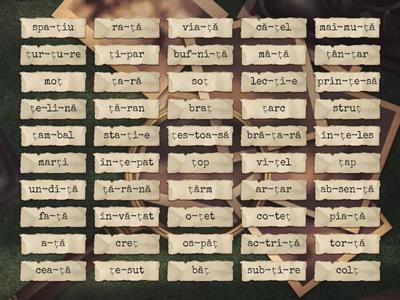 spa-țiu ra-ță via-ță că-țel mai-mu-ță
țur-țu-re ți-par buf-ni-ță mâ-ță țân-țar
moț ța-ră soț lec-ți-e prin-țe-să
țe-li-nă ță-ran braț țarc struț
țam-bal sta-ți-e țes-toa-să bră-ța-ră în-țe-les
marți în-țe-pat țop vi-țel țap
un-di-ță ță-râ-nă țărm ar-țar ab-sen-ță
fa-ță în-vă-țat o-țet co-teț pia-ță
a-ță creț os-păț ac-tri-ță tor-ță
cea-ță țe-sut băț sub-ți-re colț